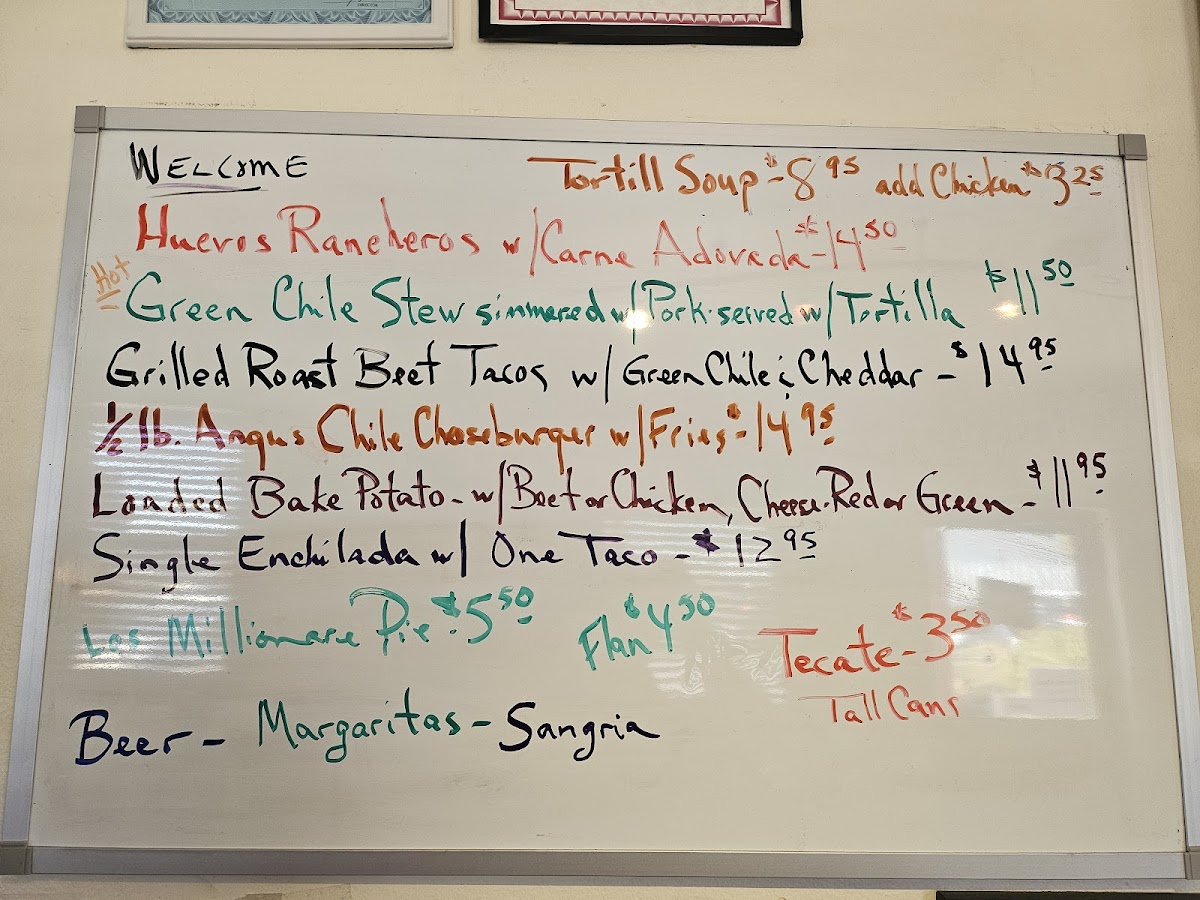 WELCOME
Tortill Soup - $8 95 add Chicken $3 25
Huevos Rancheros w/Carne Adovada - $14 50
Hot
Green Chile Stew simmered w/Pork-served w/Tortilla $11 50
Grilled Roast Beef Tacos w/ Green Chile & Cheddar - $14 95
1/2 lb. Angus Chile Cheeseburger w/Fries - $14 95
Loaded Bake Potato - w/Beef or Chicken, Cheese-Red or Green - $11 95
Single Enchilada w/ One Taco - $12 95
Los Millionare Pie - $5 50
Flan $4 50
Tecate - $3 50
Tall Cans
Beer - Margaritas - Sangria